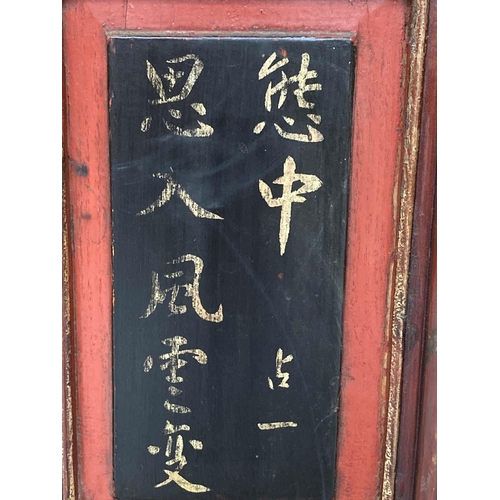 思入風雲变
態中
占一